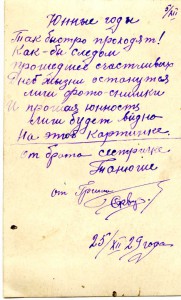 5/XII
Юнные годы
Так быстро проходят!
Как-бы следом
прошедшее счастливых
дней жизни останутся
лиги фото-снимки
И прошлая юность
лиги будет видно
На этой Картинке.
от брата сестричке
Танюше
от
25/XII 29 года